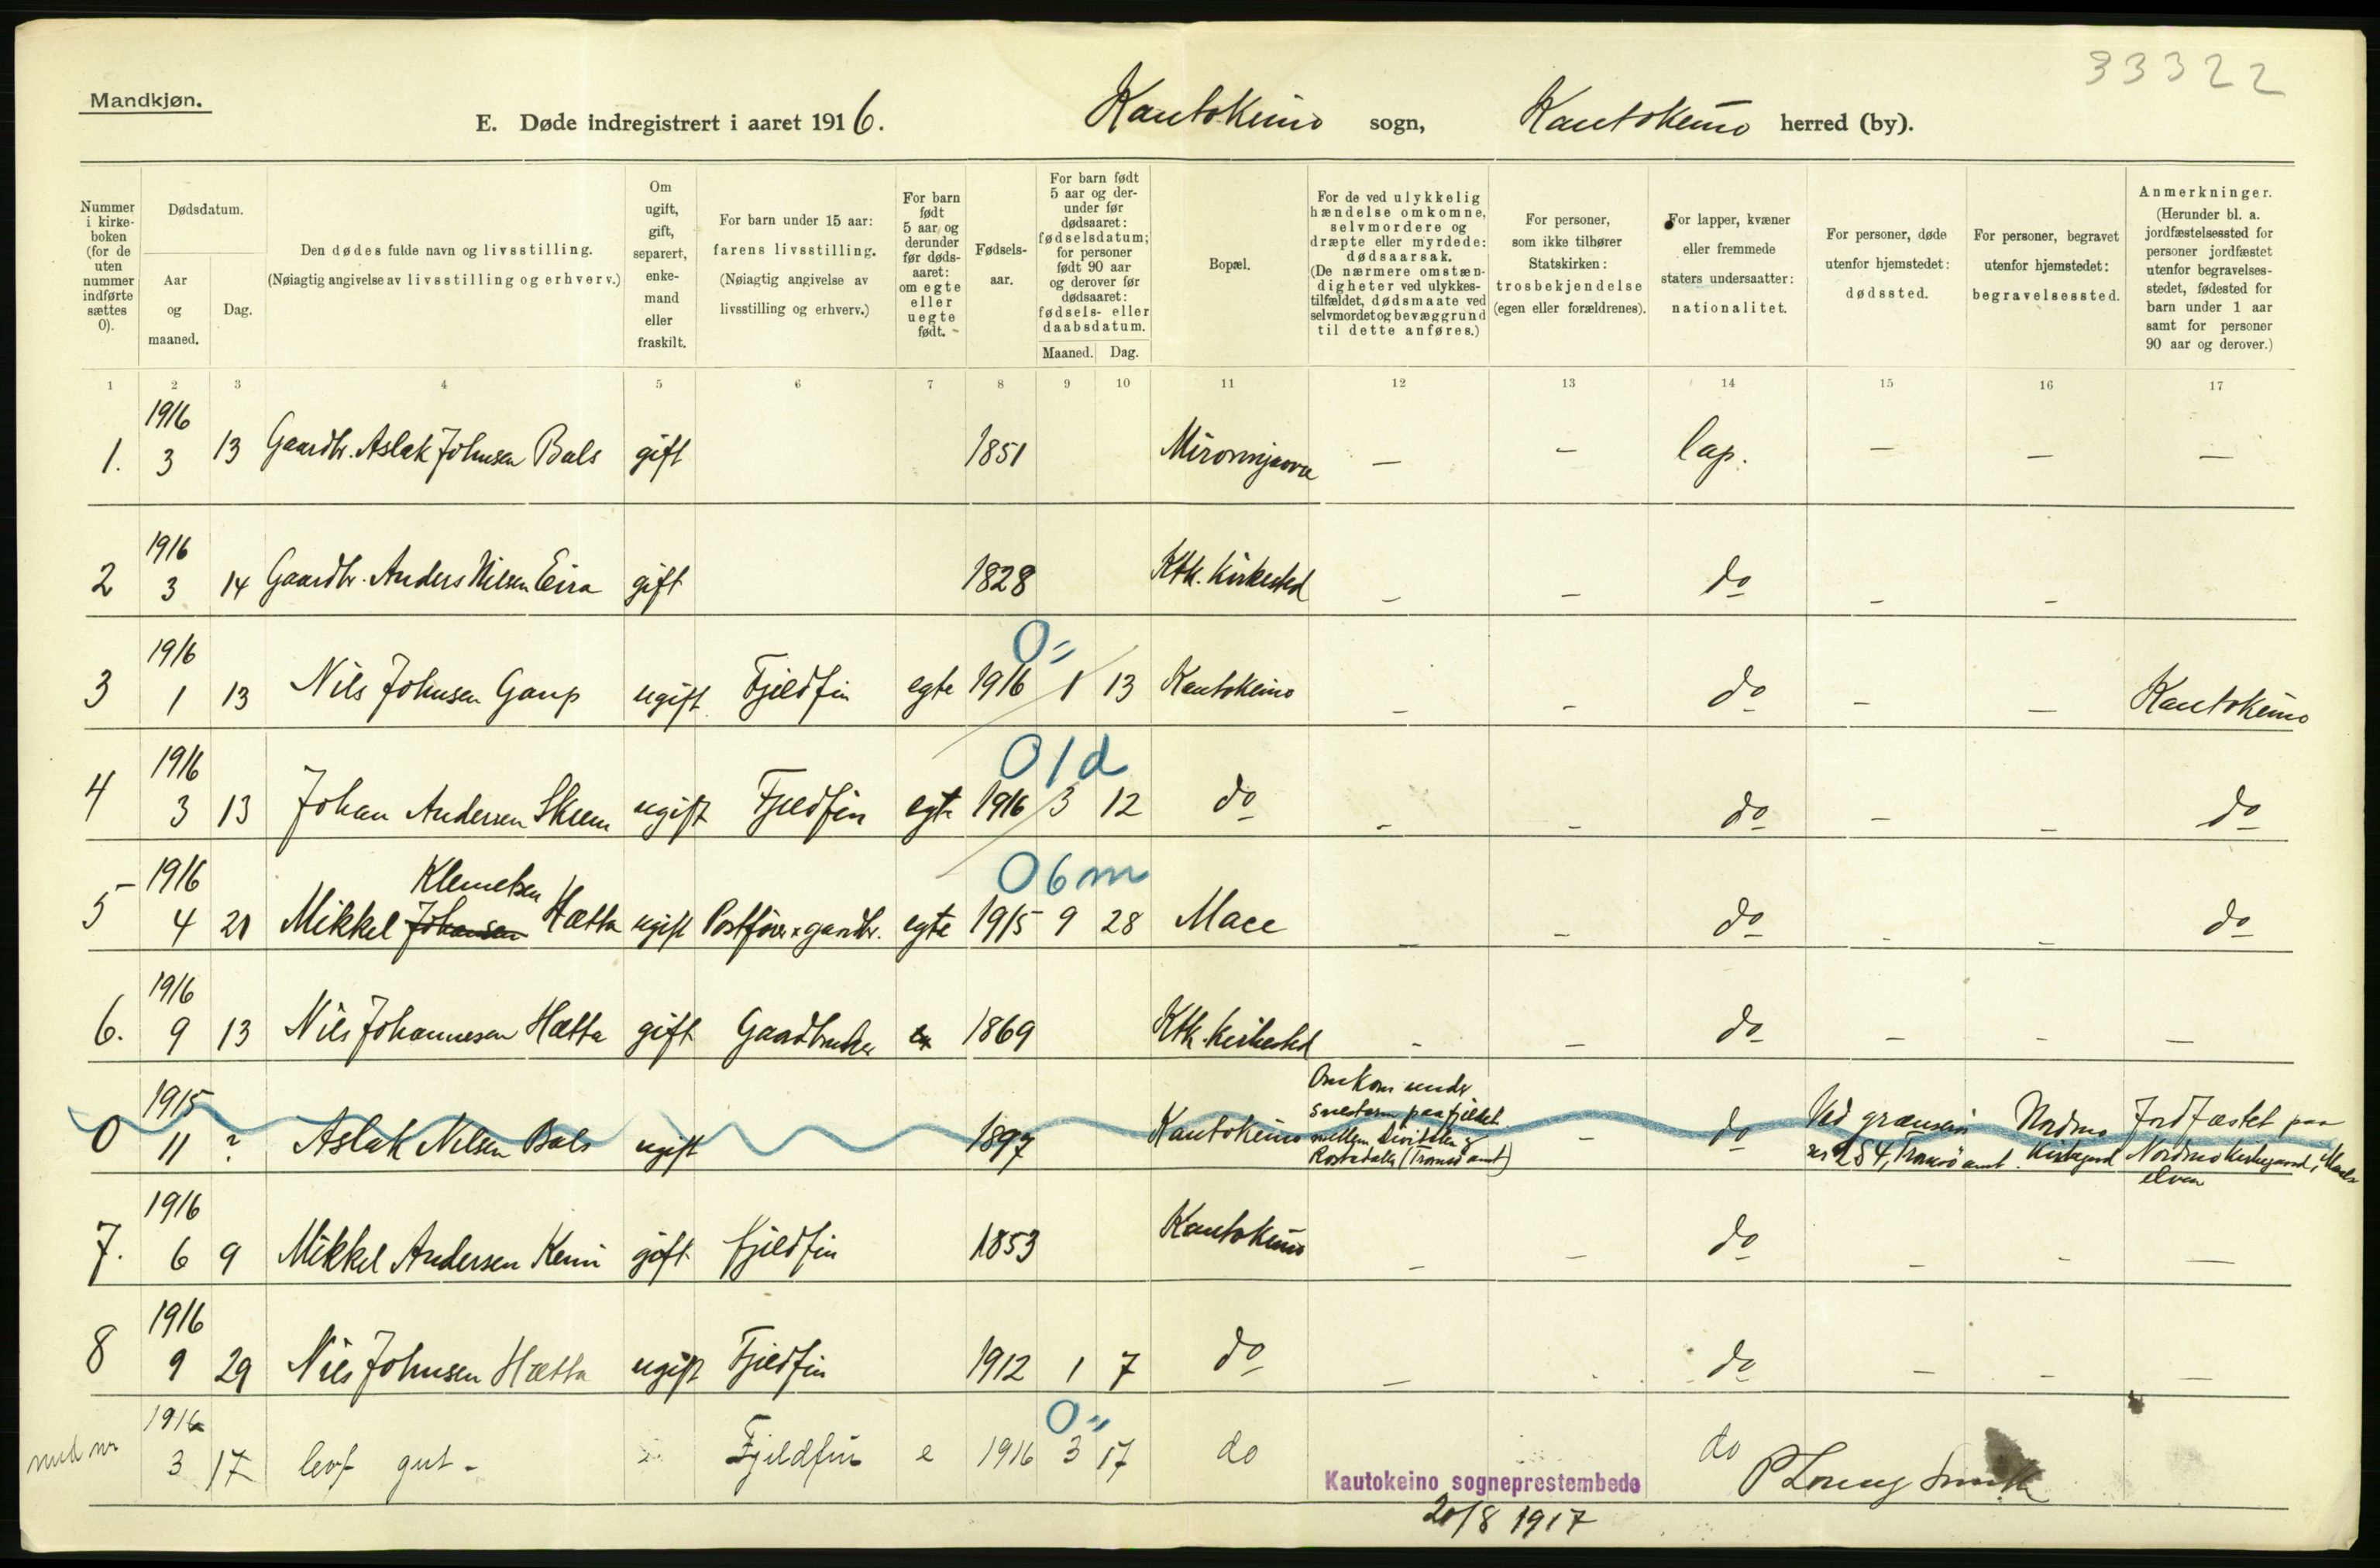 33322
Mandkjøn.
E. Døde indregistrert i aaret 1916. Kautokeino sogn, Kautokeino herred (by).
Nummer i kirke-boken (for de uten nummer indførte sættes 0).
Dødsdatum.
Aar og maaned.
Dag.
Den dødes fulde navn og livsstilling.
(Nøiagtig angivelse av livsstilling og erhverv.)
Om ugift, gift, separert, enke-mand eller fraskilt.
For barn under 15 aar: farens livsstilling.
(Nøiagtig angivelse av livsstilling og erhverv.)
For barn født 5 aar og derunder før døds-aaret: om egte eller uegte født.
Fødsels-aar.
For barn født 5 aar og der-under før dødsaaret: fødselsdatum; for personer født 90 aar og derover før dødsaaret: fødsels- eller daabsdatum.
Maaned. Dag.
Bopæl.
For de ved ulykkelig hændelse omkomne, selvmordere og dræpte eller myrdede: dødsaarsak.
(De nærmere omstæn-digheter ved ulykkes-tilfældet, dødsmaate ved selvmordet og bevæggrund til dette anføres.)
For personer, som ikke tilhører Statskirken: trosbekjendelse (egen eller forældrenes).
For lapper, kvæner eller fremmede staters undersaatter: nationalitet.
For personer, døde utenfor hjemstedet: dødssted.
For personer, begravet utenfor hjemstedet: begravelsessted.
Anmerkninger.
(Herunder bl. a. jordfæstelsessted for personer jordfæstet utenfor begravelses-stedet, fødested for barn under 1 aar samt for personer 90 aar og derover.)
1 2 3 4 5 6 7 8 9 10 11 12 13 14 15 16 17
1. 1916 3 13 Gaardbr. Aslak Johnsen Bals gift 1851 — — lap. — — —
2 1916 3 14 Gaardbr. Anders Nilsen Eira gift 1828 Ktk. Kirkested — — do — —
0 "
3 1916 1 13 Nils Johnsen Gaup ugift Fjeldfin egte 1916 1 13 Kautokeino — — do — — Kautokeino
0 1 d
4 1916 3 13 Johan Andersen Skum ugift Fjeldfin egte 1916 3 12 do — — do — — do
0 6 m
5 1916 4 21 Mikkel Johansen Klemetsen Hætta ugift egte 1915 9 28 Mace — — do — — do
6. 1916 9 13 Nils Johannesen Hætta gift Gaardbruker 1869 Ktk. Kirkested — — do — — —
0 1915 11 ? Aslak Nilsen Bals ugift 1897 Kautokeino Omkom under snestorm paa fjeldet mellem og Rostadalen (Tromsø amt) — do Ved grænsen 284, Tromsø amt. Nordmo Kirkegaard Jordfæstet paa Nordmo Kirkegaard, Maalselven
7. 1916 6 9 Mikkel Andersen Kemi gift fjeldfin 1853 Kautokeino — — do — — —
8 1916 9 29 Nils Johnsen Hætta ugift Fjeldfin 1912 1 7 do — do — — —
0 "
1916 3 17 levf gut - Fjeldfin e 1916 3 17 do do
Kautokeino sogneprestembede
20/8 1917